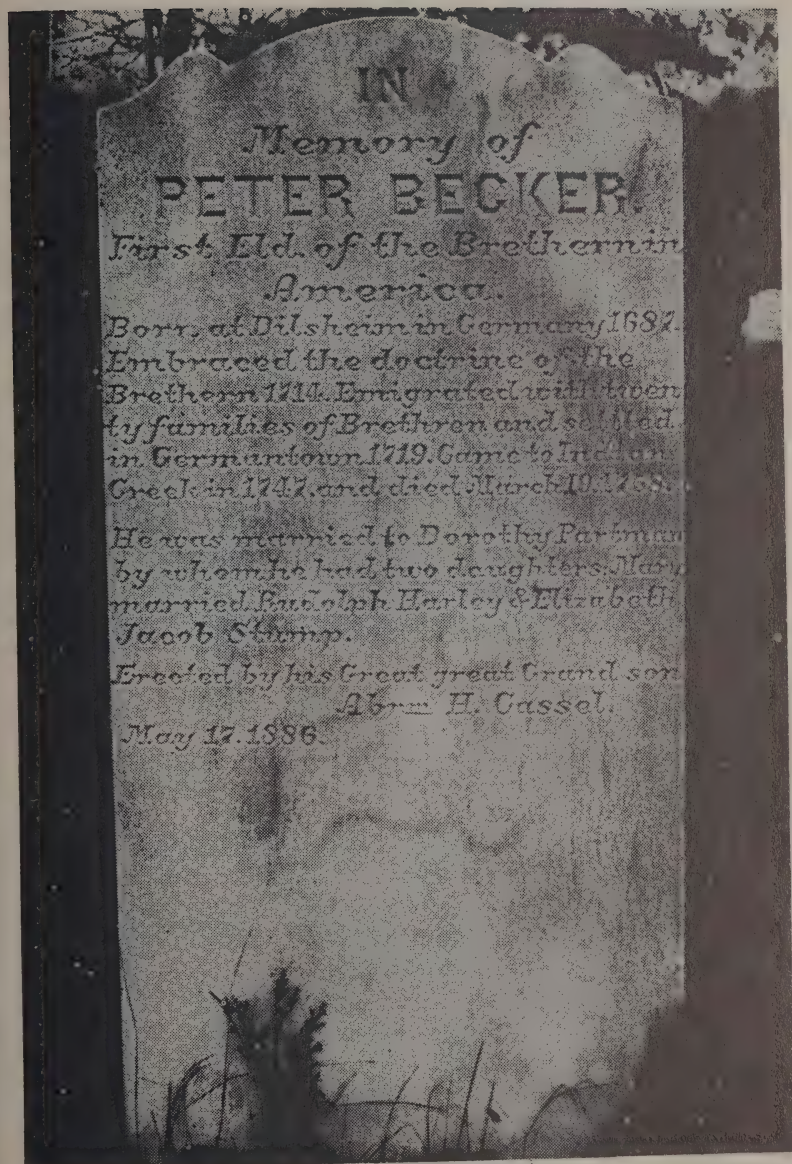 IN
Memory of
PETER BECKER.
First Eld. of the Brethern in
America.
Born, at Dilsheim in Germany 1687.
Embraced the doctrine of the
Brethern 1714. Emigrated with twen
ty families of Brethren and settled
in Germantown 1719. Came to Indian
Creek in 1747. and died March 19. 1758.
He was married to Dorothy Partman
by whom he had two daughters. Mary
married Rudolph Harley & Elizabeth
Jacob Stump.
Erected by his Great great Grand son
Abrm H. Cassel.
May 17. 1886.